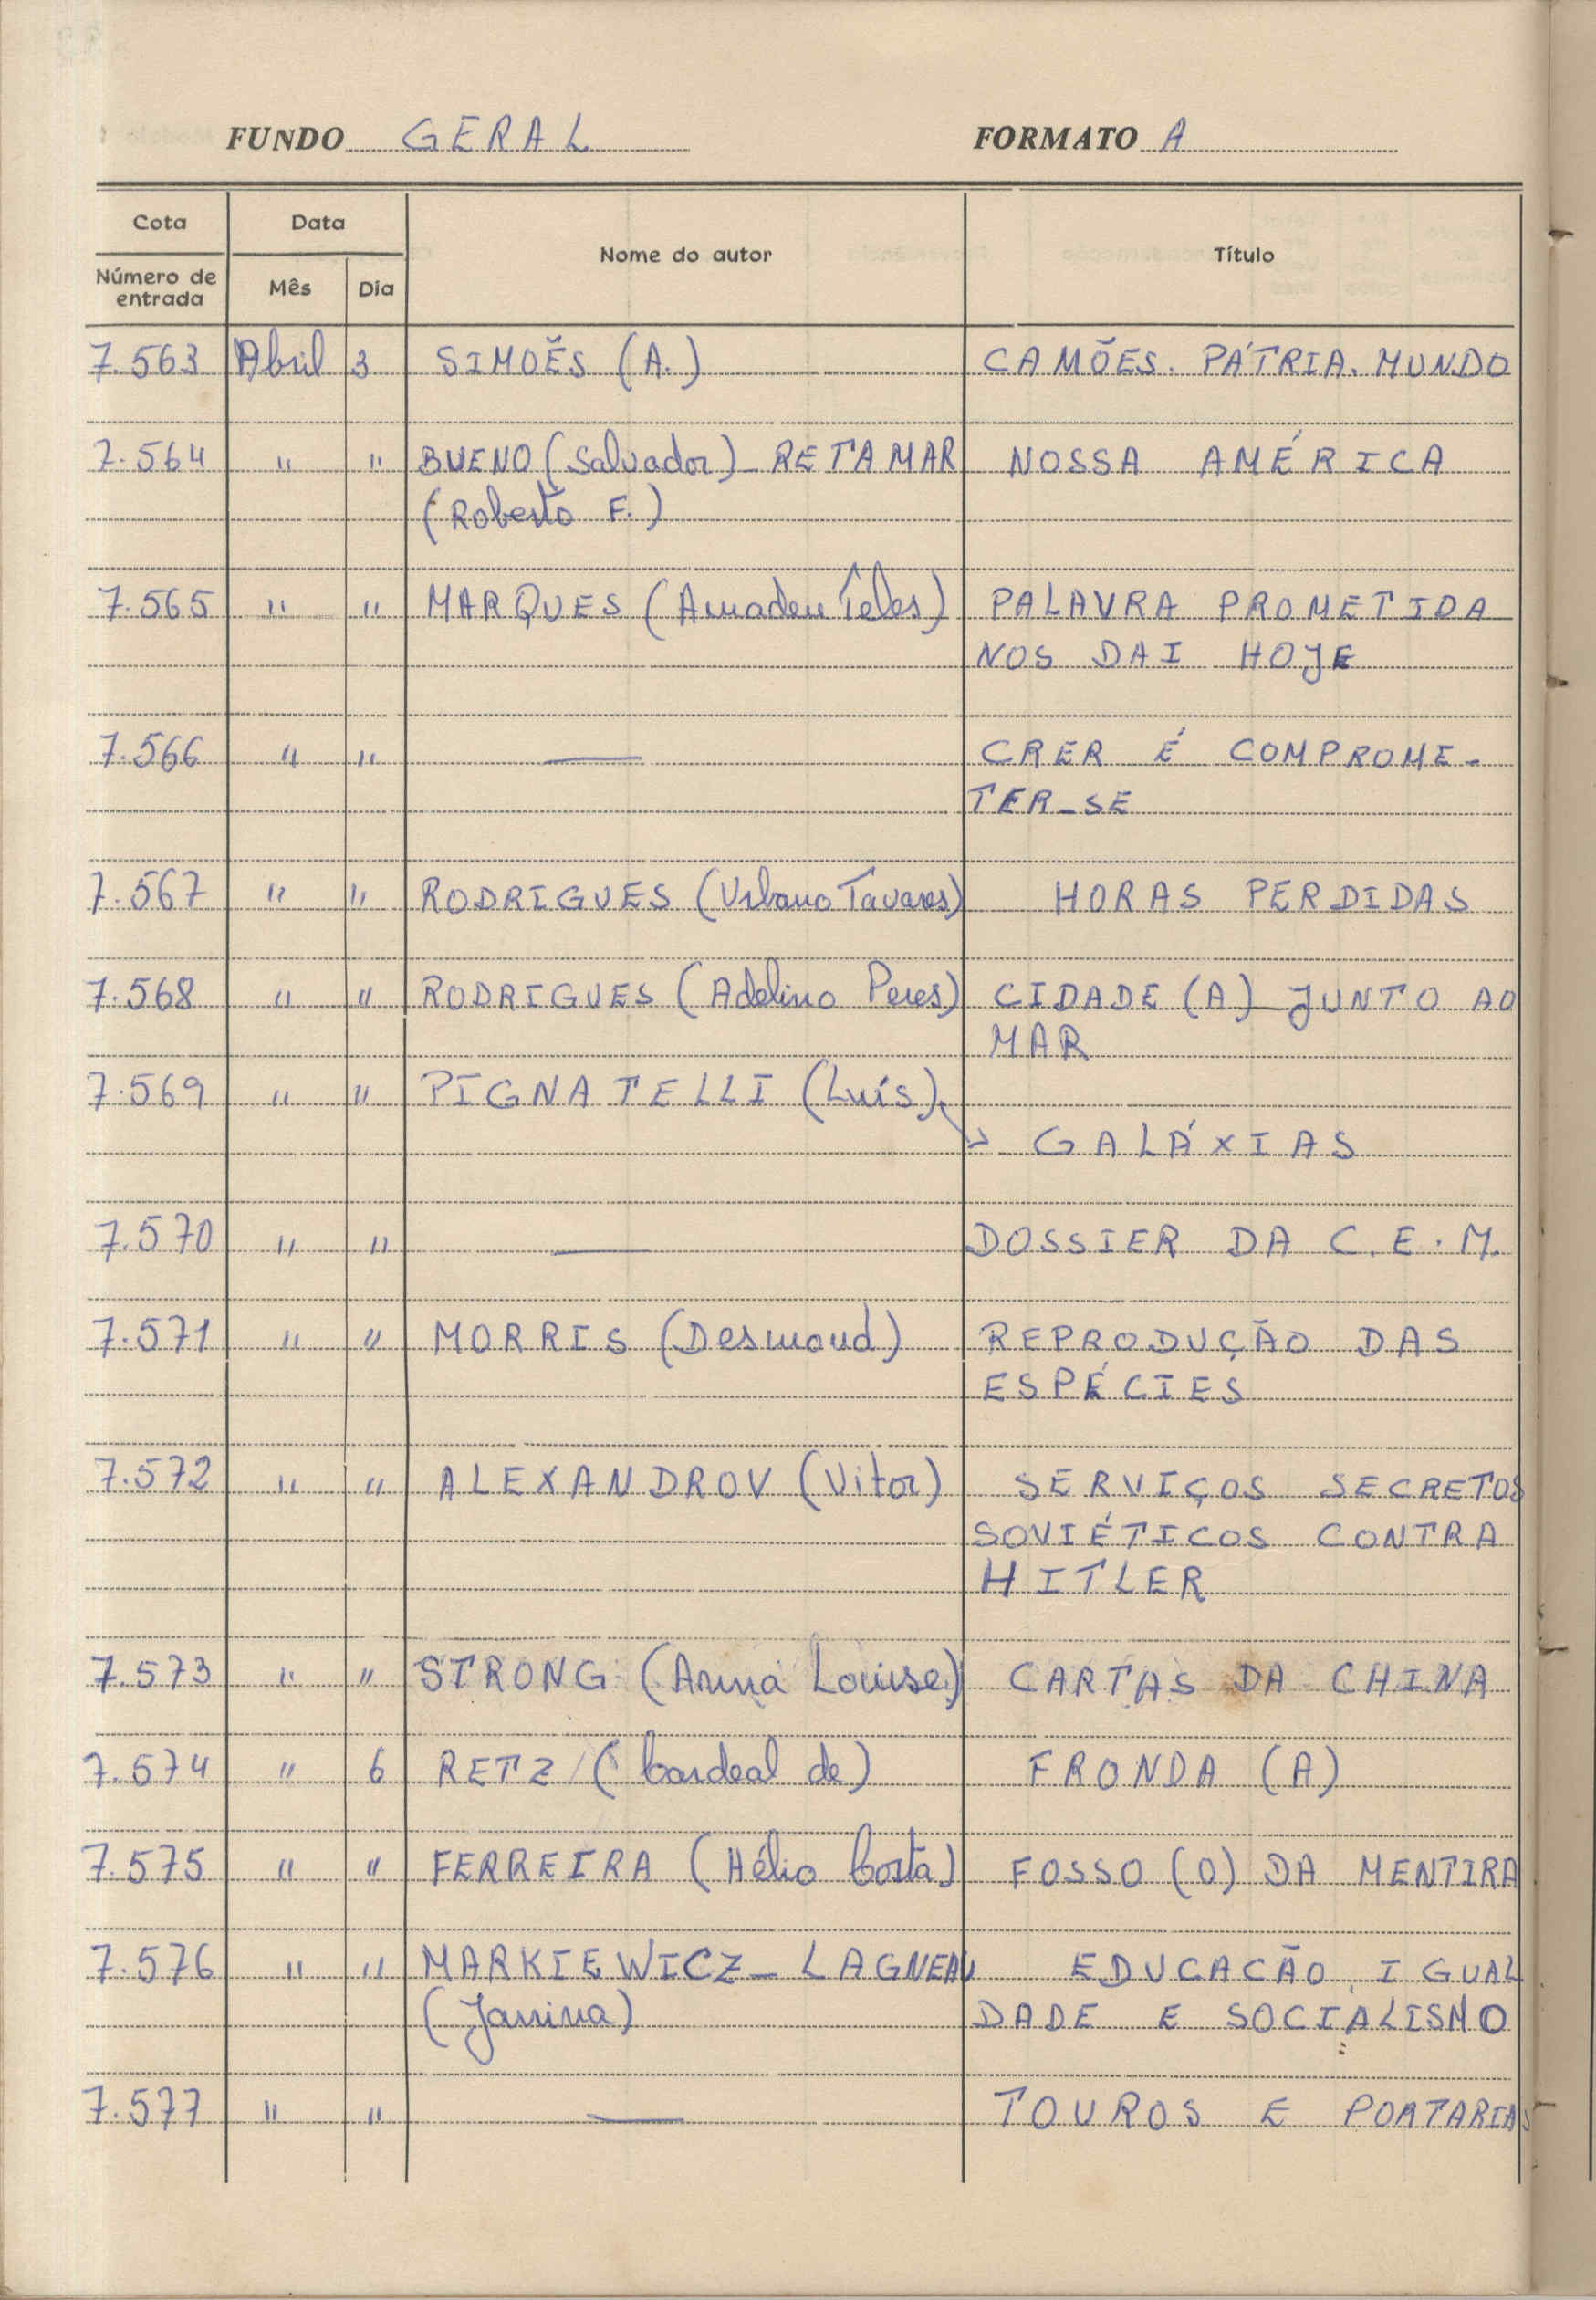 FUNDO GERAL FORMATO A
Cota Data Nome do autor Título
Número de entrada Mês Dia
7.563 Abril 3 SIMOËS (A.) CAMÕES. PÁTRIA. MUNDO
7.564 " " BUENO (Salvador) - RETAMAR NOSSA AMÉRICA
(Roberto F.)
7.565 " " MARQUES (Amadeu Teles) PALAVRA PROMETIDA
NOS DAI HOJE
7.566 " " — CRER É COMPROME-
TER-SE
7.567 " " RODRIGUES (Urbano Tavares) HORAS PERDIDAS
7.568 " " RODRIGUES (Adelino Peres) CIDADE (A) JUNTO AO
MAR
7.569 " " PIGNATELLI (Luís)
GALÁXIAS
7.570 " " — DOSSIER DA C.E.M.
7.571 " " MORRIS (Desmond) REPRODUÇÃO DAS
ESPÉCIES
7.572 " " ALEXANDROV (Vitor) SERVIÇOS SECRETOS
SOVIÉTICOS CONTRA
HITLER
7.573 " " STRONG (Anna Louise) CARTAS DA CHINA
7.574 " 6 RETZ (Cardeal de) FRONDA (A)
7.575 " " FERREIRA (Hélio Costa) FOSSO (O) DA MENTIRA
7.576 " " MARKIEWICZ-LAGNEAU EDUCACÃO, IGUAL
(Janina) DADE E SOCIALISMO
7.577 " " — TOUROS E PORTARIAS